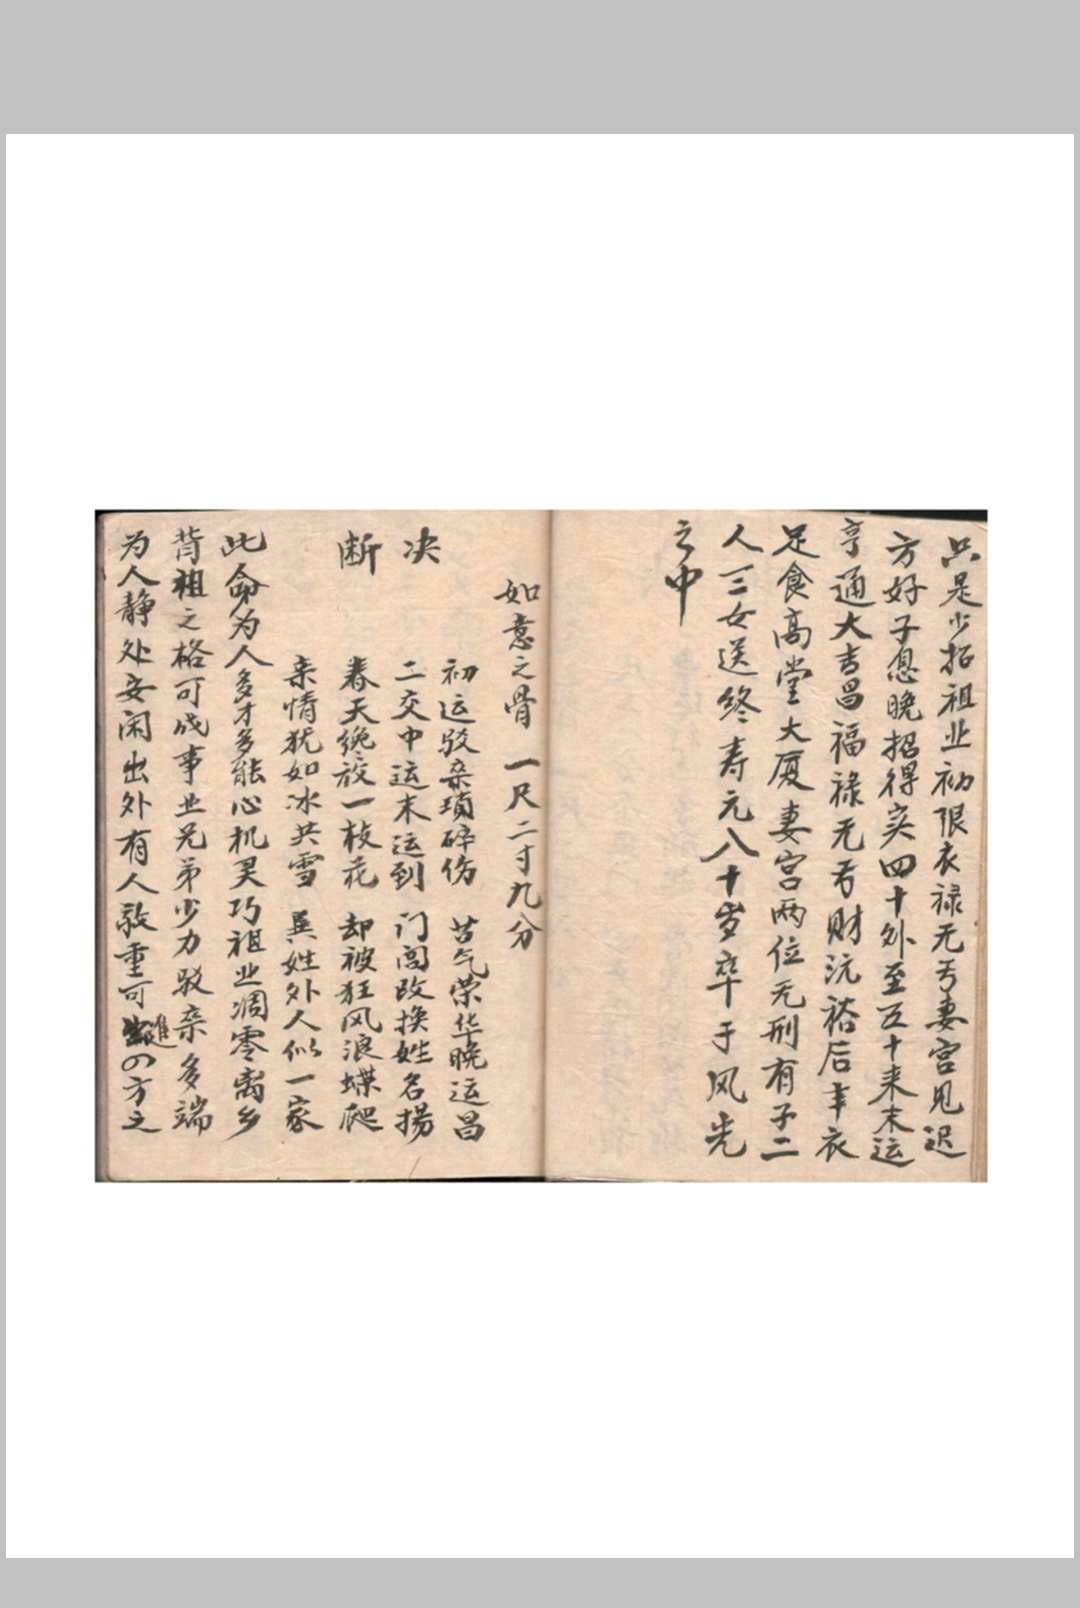 只是少招祖业初限衣禄无亏妻宫见迟
方好子息晚招得实四十外至五十来末运
亨通大吉昌福禄无亏财沅裕后丰衣
足食高堂大厦妻宫两位无刑有子二
人三女送终寿元八十岁卒于风光
之中
如意之骨一尺二寸九分
初运驳杂琐碎伤 苦气荣华晚运昌
决 二交中运末运到 门闾改换姓名揚
断 春天绝放一枝花 却被狂风浪蝶爬
亲情犹如冰共雪 異姓外人似一家
此命为人多才多能心机灵巧祖业凋零离乡
背祖之格可成事业兄弟少力驳亲多端
为人静处安闲出外有人敬重可進四方之